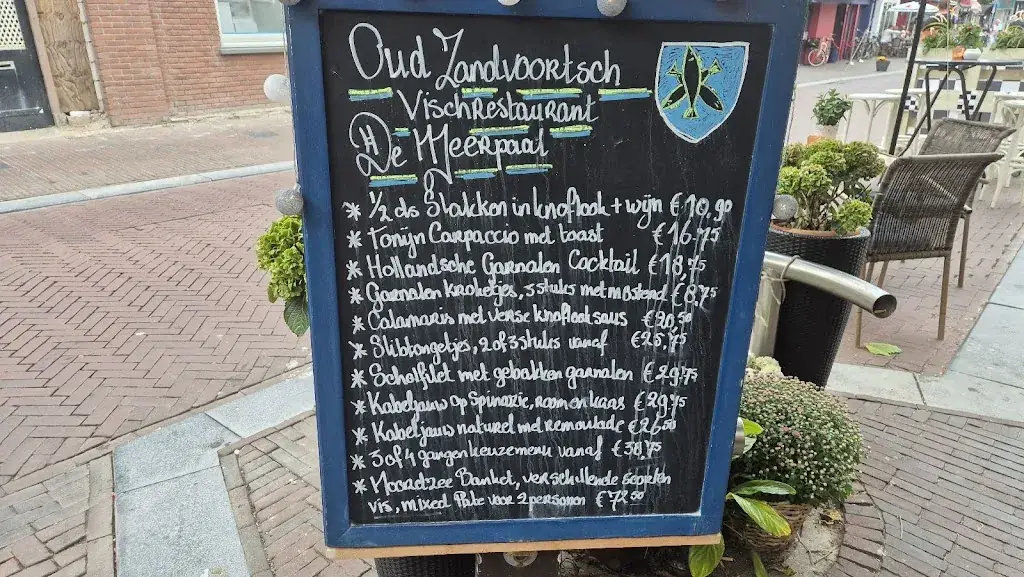 Oud Zandvoortsch
Vischrestaurant
De Meerpaal
* 1/2 ds Slakken in knoflook + wijn € 10,90
* Tonijn Carpaccio met toast € 16,75
* Hollandsche Garnalen Cocktail € 18,75
* Garnalen kroketjes, 3 stuks met mosterd € 8,75
* Calamaris met verse knoflooksaus € 20,50
* Slibtongetjes, 2 of 3 stuks vanaf € 25,75
* Scholfilet met gebakken garnalen € 29,75
* Kabeljauw op spinazie, room en kaas € 29,75
* Kabeljauw naturel met remoulade € 26,50
* 3 of 4 gangen keuzemenu vanaf € 38,75
* Noordzee Banket, verschillende soorten
vis, mixed Plate voor 2 personen € 72,50